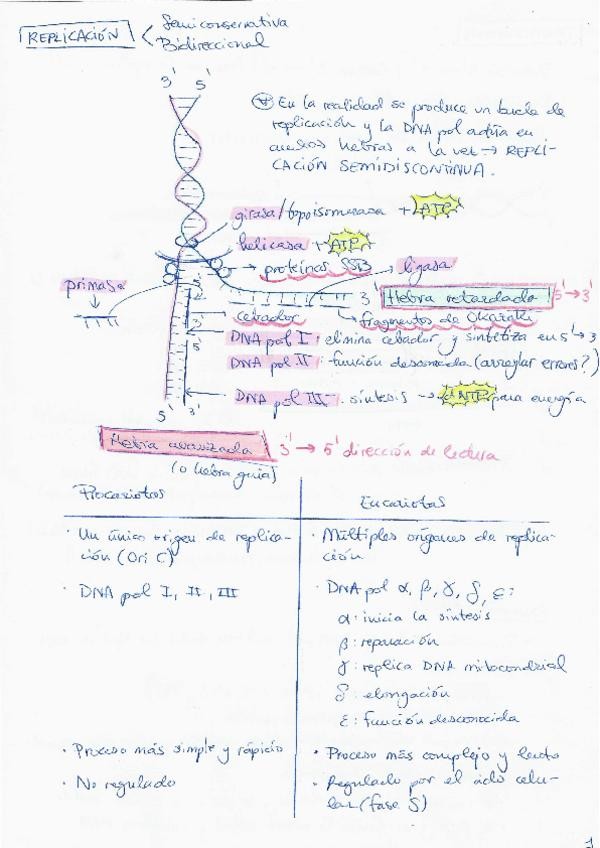 REPLICACIÓN
Semiconservativa
Bidireccional
3' 5'
* En la realidad se produce un bucle de
replicación y la DNA pol actúa en
ambas hebras a la vez → REPLI-
CACIÓN SEMIDISCONTINUA.
girasa/topoisomerasa + ATP
helicasa + ATP
proteínas SSB
ligasa
primasa
3' Hebra retardada 5' → 3'
cebador
fragmentos de Okazaki
5'
3'
5'
DNA pol I: elimina cebador y sintetiza en 5' → 3'
DNA pol II: función desconocida (arreglar errores?)
DNA pol III: síntesis → dNTP para energía
5' 3'
Hebra avanzada 3' → 5' dirección de lectura
(o hebra guía)
Procariotas
Eucariotas
· Un único origen de replica-
ción (Ori C)
· Múltiples orígenes de replica-
ción
· DNA pol I, II, III
· DNA pol α, β, γ, δ, ε:
α: inicia la síntesis
β: reparación
γ: replica DNA mitocondrial
δ: elongación
ε: función desconocida
· Proceso más simple y rápido
· Proceso más complejo y lento
· No regulado
· Regulado por el ciclo celu-
lar (fase S)
1